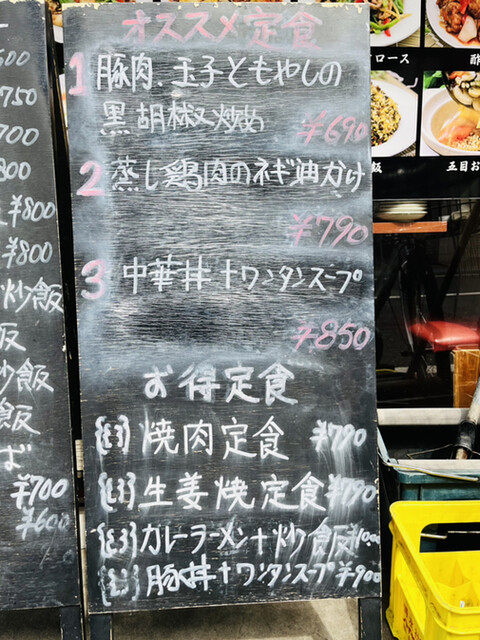 オススメ定食
1 豚肉、玉子ともやしの
黒胡椒炒め ¥690
2 蒸し鶏肉のネギ油かけ
¥790
3 中華丼+ワンタンスープ
¥850
お得定食
焼肉定食 ¥790
生姜焼定食 ¥790
カレーラーメン+炒飯
豚丼+ワンタンスープ ¥900
600
750
700
800
¥800
¥800
炒飯
飯
炒飯
飯
ば
¥700
¥600
ロース
酢
飯
五目お